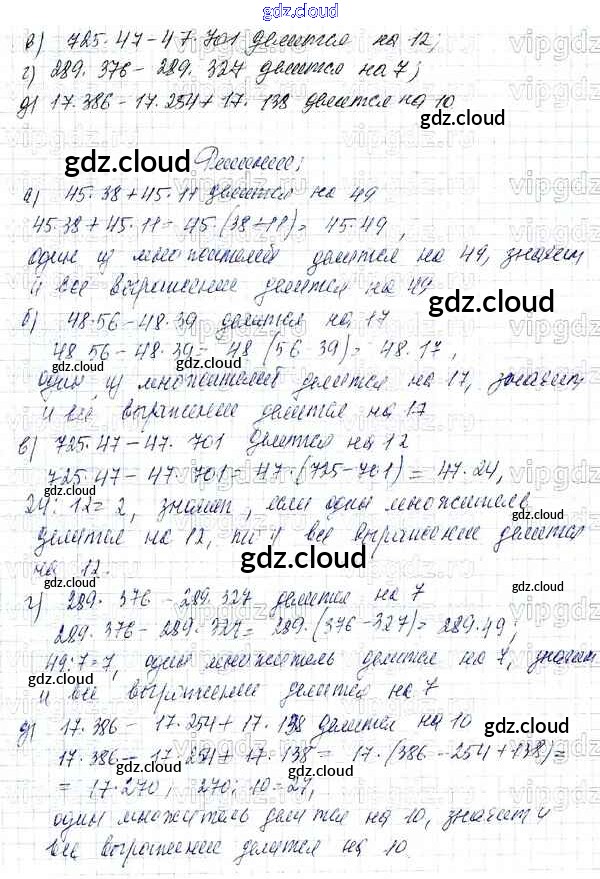 gdz.cloud
в) 725·47-47·701 делится на 12;
г) 289·376-289·327 делится на 7;
д) 17·386-17·254+17·138 делится на 10
gdz.cloud
gdz.cloud Решение:
а) 45·38+45·11 делится на 49
45·38+45·11=45·(38+11)=45·49,
один из множителей делится на 49, значит
и все выражение делится на 49
gdz.cloud
б) 48·56-48·39 делится на 17
48·56-48·39=48(56-39)=48·17,
gdz.cloud
один из множителей делится на 17, значит
и все выражение делится на 17
в) 725·47-47·701 делится на 12
725·47-47·701=47·(725-701)=47·24,
gdz.cloud
24:12=2, значит, если один множитель
делится на 12, то и все выражение делится
gdz.cloud
на 12.
г) 289·376-289·327 делится на 7
289·376-289·327=289·(376-327)=289·49;
49:7=7, один множитель делится на 7, значит
gdz.cloud gdz.cloud
и все выражение делится на 7
д) 17·386-17·254+17·138 делится на 10
gdz.cloud
17·386-17·254+17·138=17·(386-254+138)=
gdz.cloud gdz.cloud
=17·270, 270:10=27,
один множитель делится на 10, значит и
все выражение делится на 10
gdz.cloud